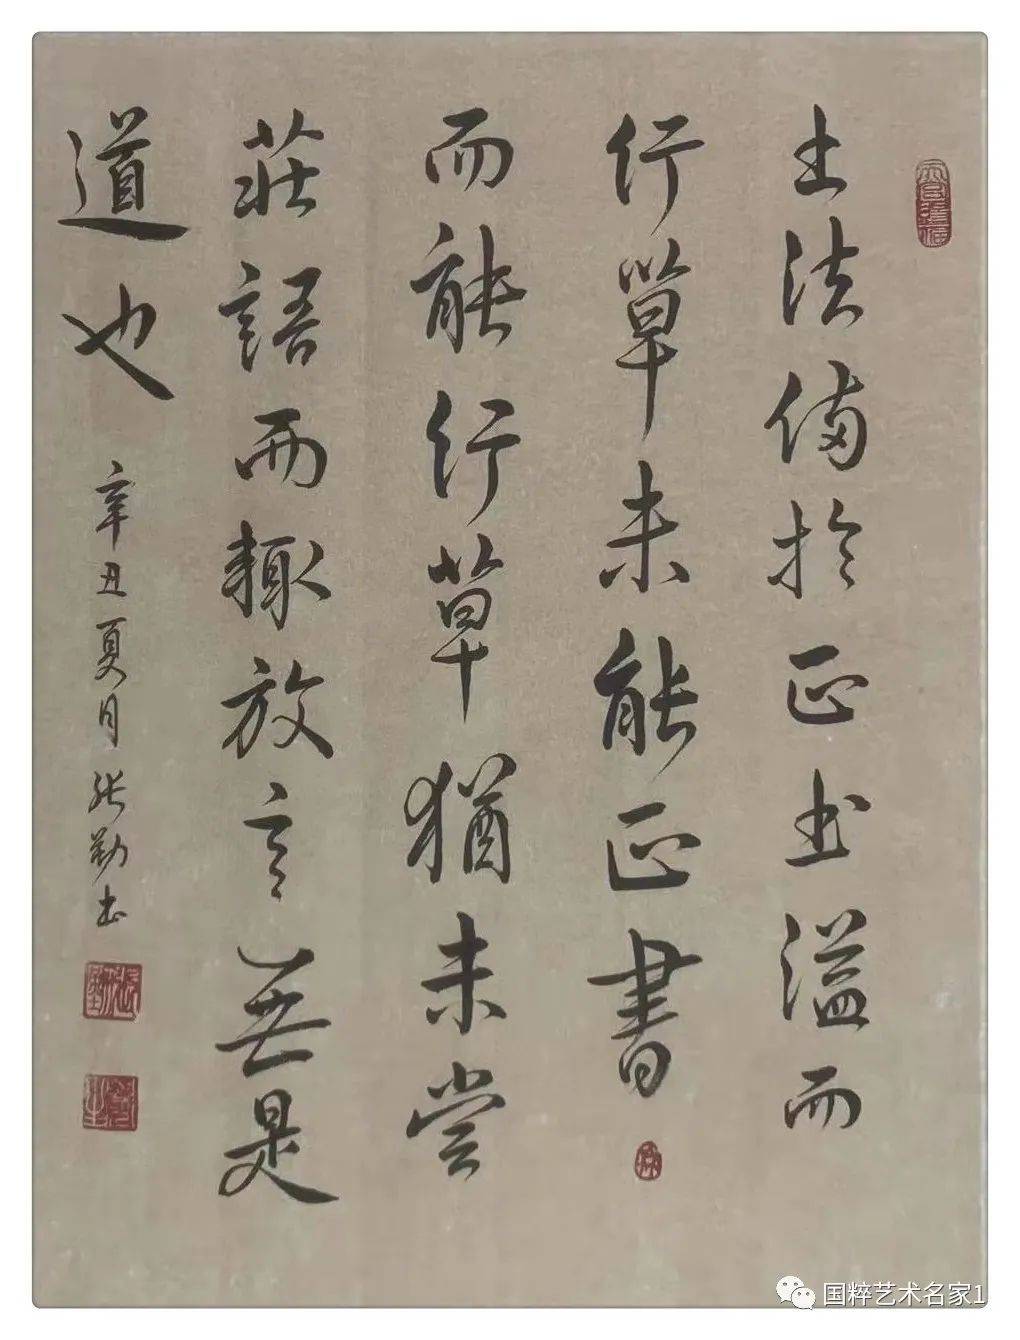 书法備於正书溢而
行草未能正書
而能行草猶未嘗
莊語而輙放言無是
道也
辛丑夏月 张勤书
国粹艺术名家1